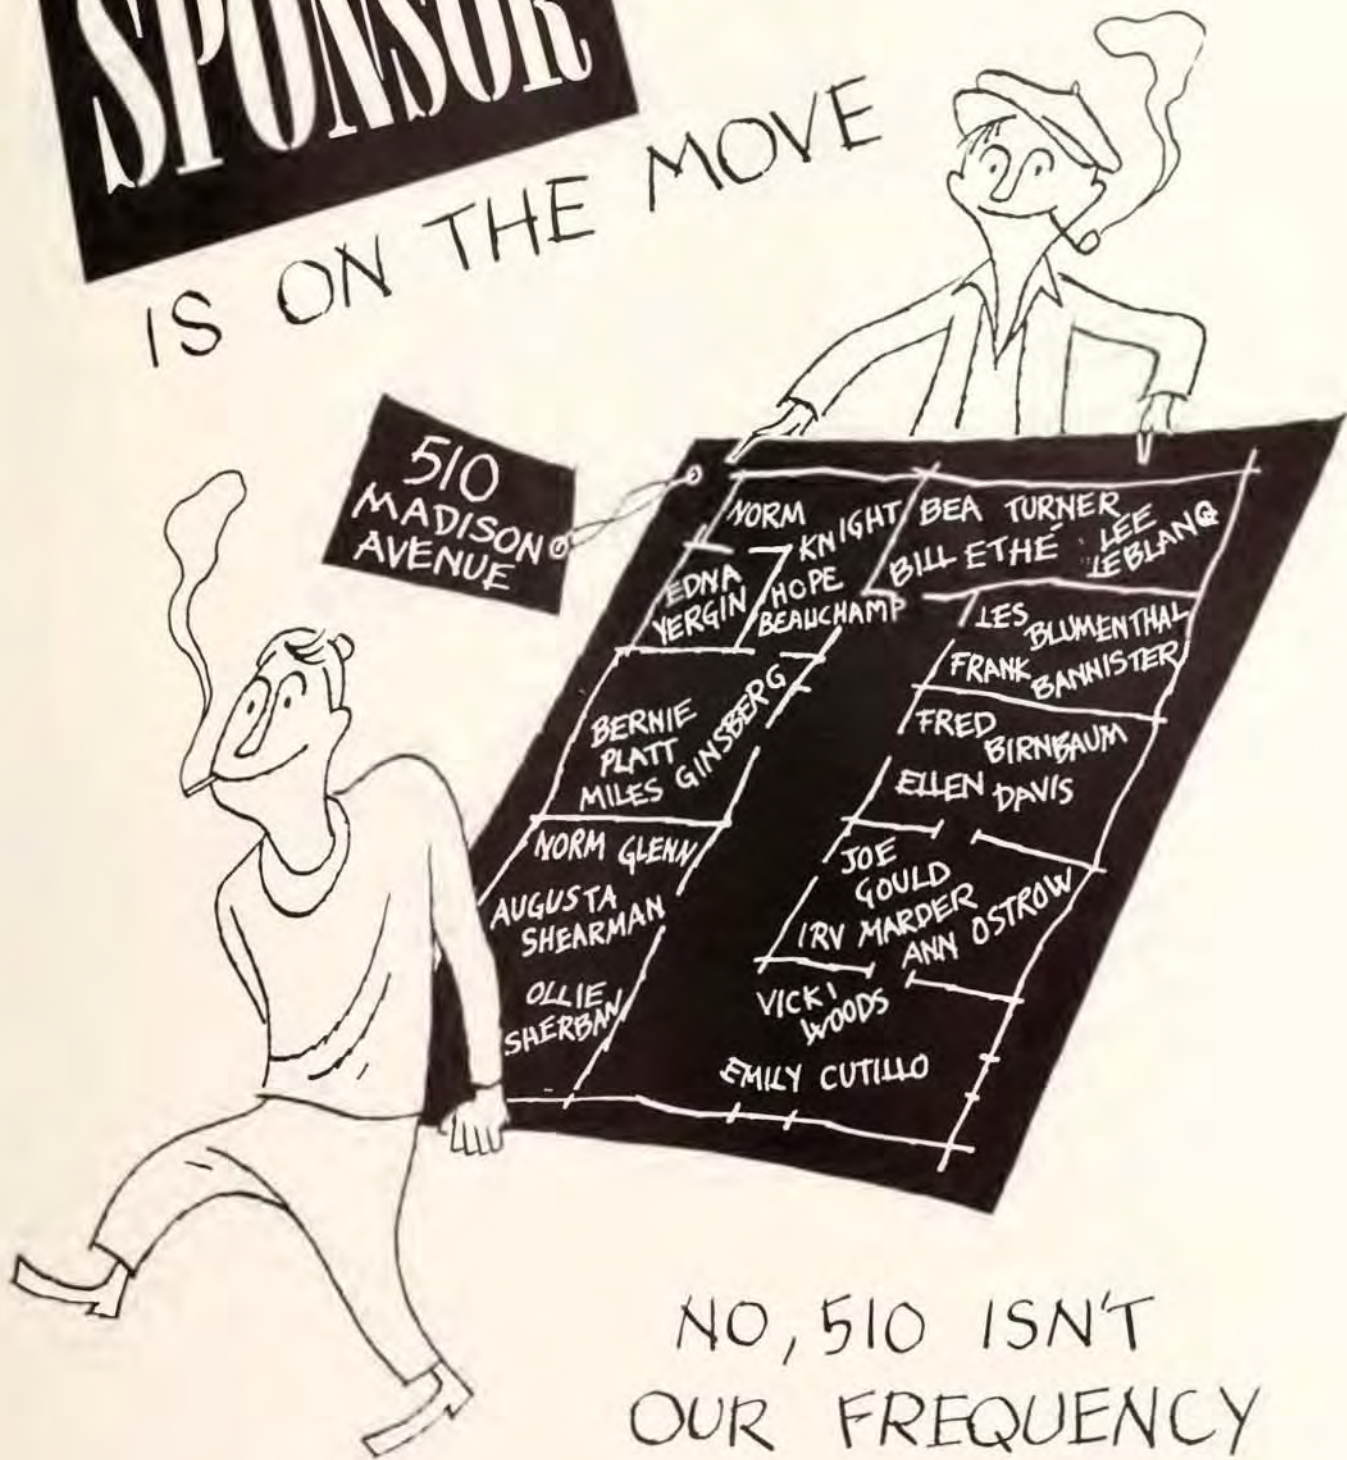 SPONSOR
IS ON THE MOVE
510
MADISON
AVENUE
NORM
KNIGHT
BEA TURNER
BILL ETHÉ
LEE
LEBLANG
EDNA
YERGIN
HOPE
BEAUCHAMP
LES
BLUMENTHAL
FRANK
BANNISTER
BERNIE
PLATT
MILES GINSBERG
FRED
BIRNBAUM
ELLEN DAVIS
NORM GLENN
AUGUSTA
SHEARMAN
OLLIE
SHERBAN
JOE
GOULD
IRV MARDER
ANN OSTROW
VICKI
WOODS
EMILY CUTILLO
NO, 510 ISN'T
OUR FREQUENCY